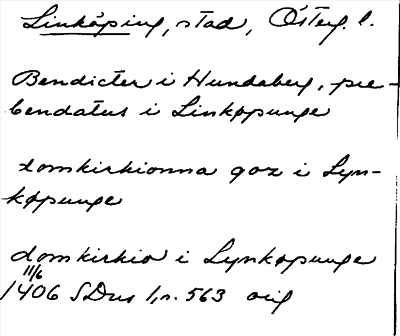 Linköping, stad, Österg. l.
Bendicter i Hundaberg, pre-
bendatus i Linkøpunge
domkirkionna goz i Lyn-
køpunge
domkirkio i Lynkøpunge
11/6
1406 SDns 1, n. 563 orig